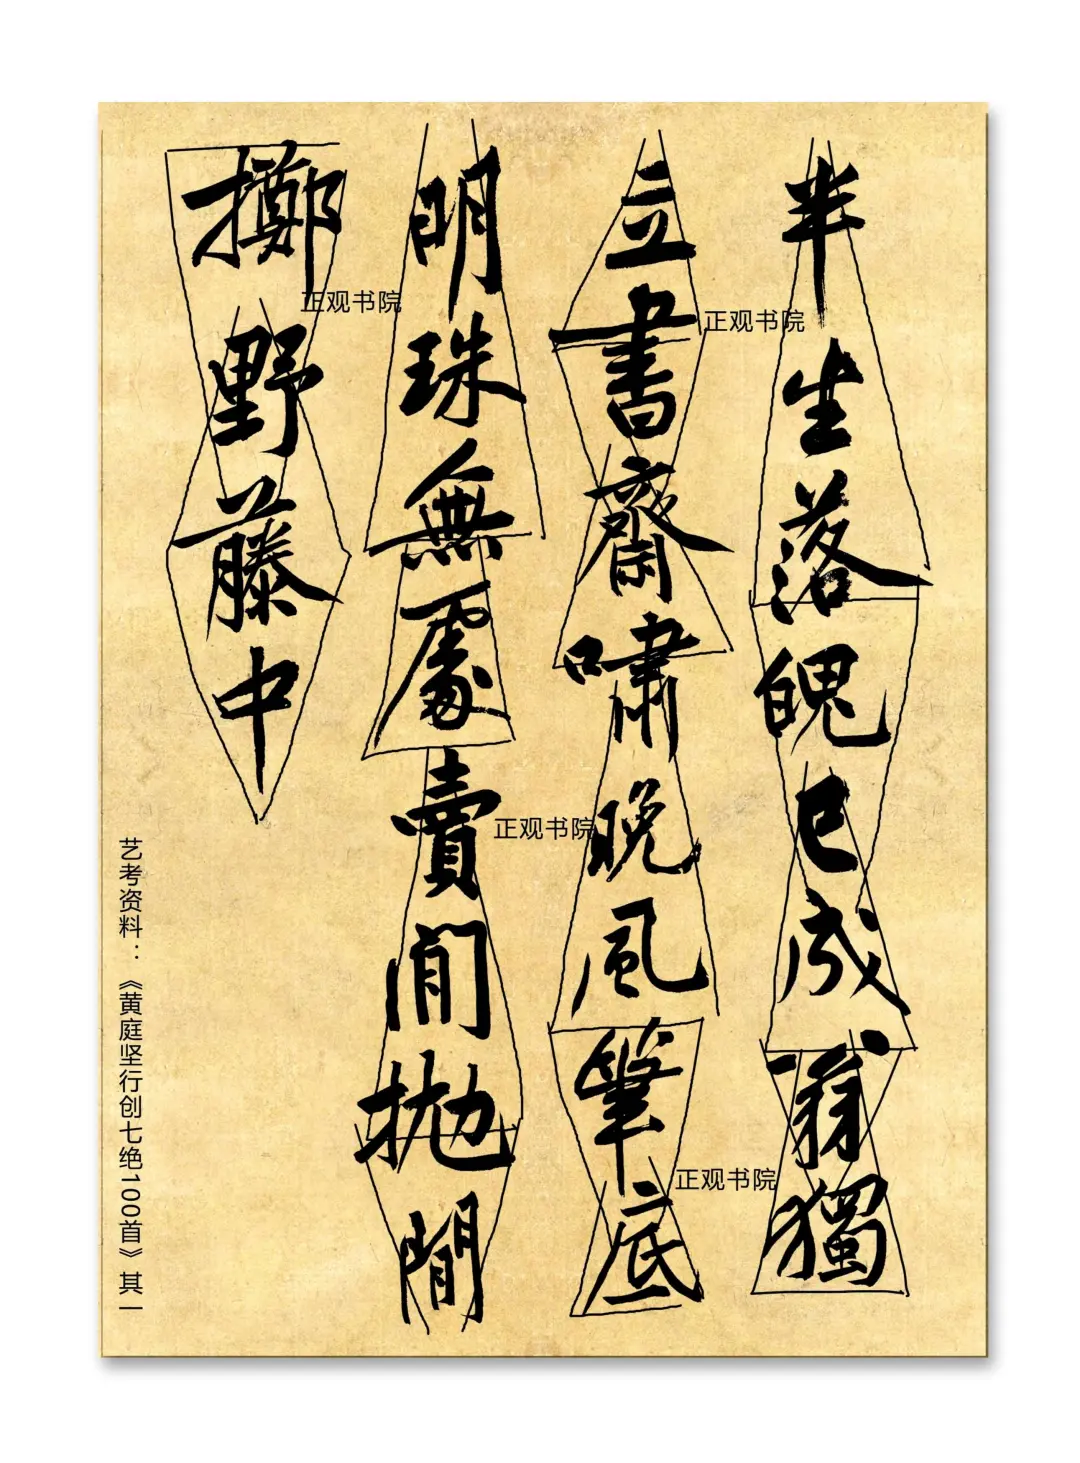 半生落魄已成翁獨
立書齋嘯晚風筆底
明珠無處賣閒抛閒
擲野藤中
艺考资料：《黄庭坚行创七绝100首》其一
正观书院
正观书院
正观书院
正观书院